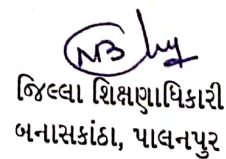 જિલ્લા શિક્ષણાધિકારી
બનાસકાંઠા, પાલનપુર